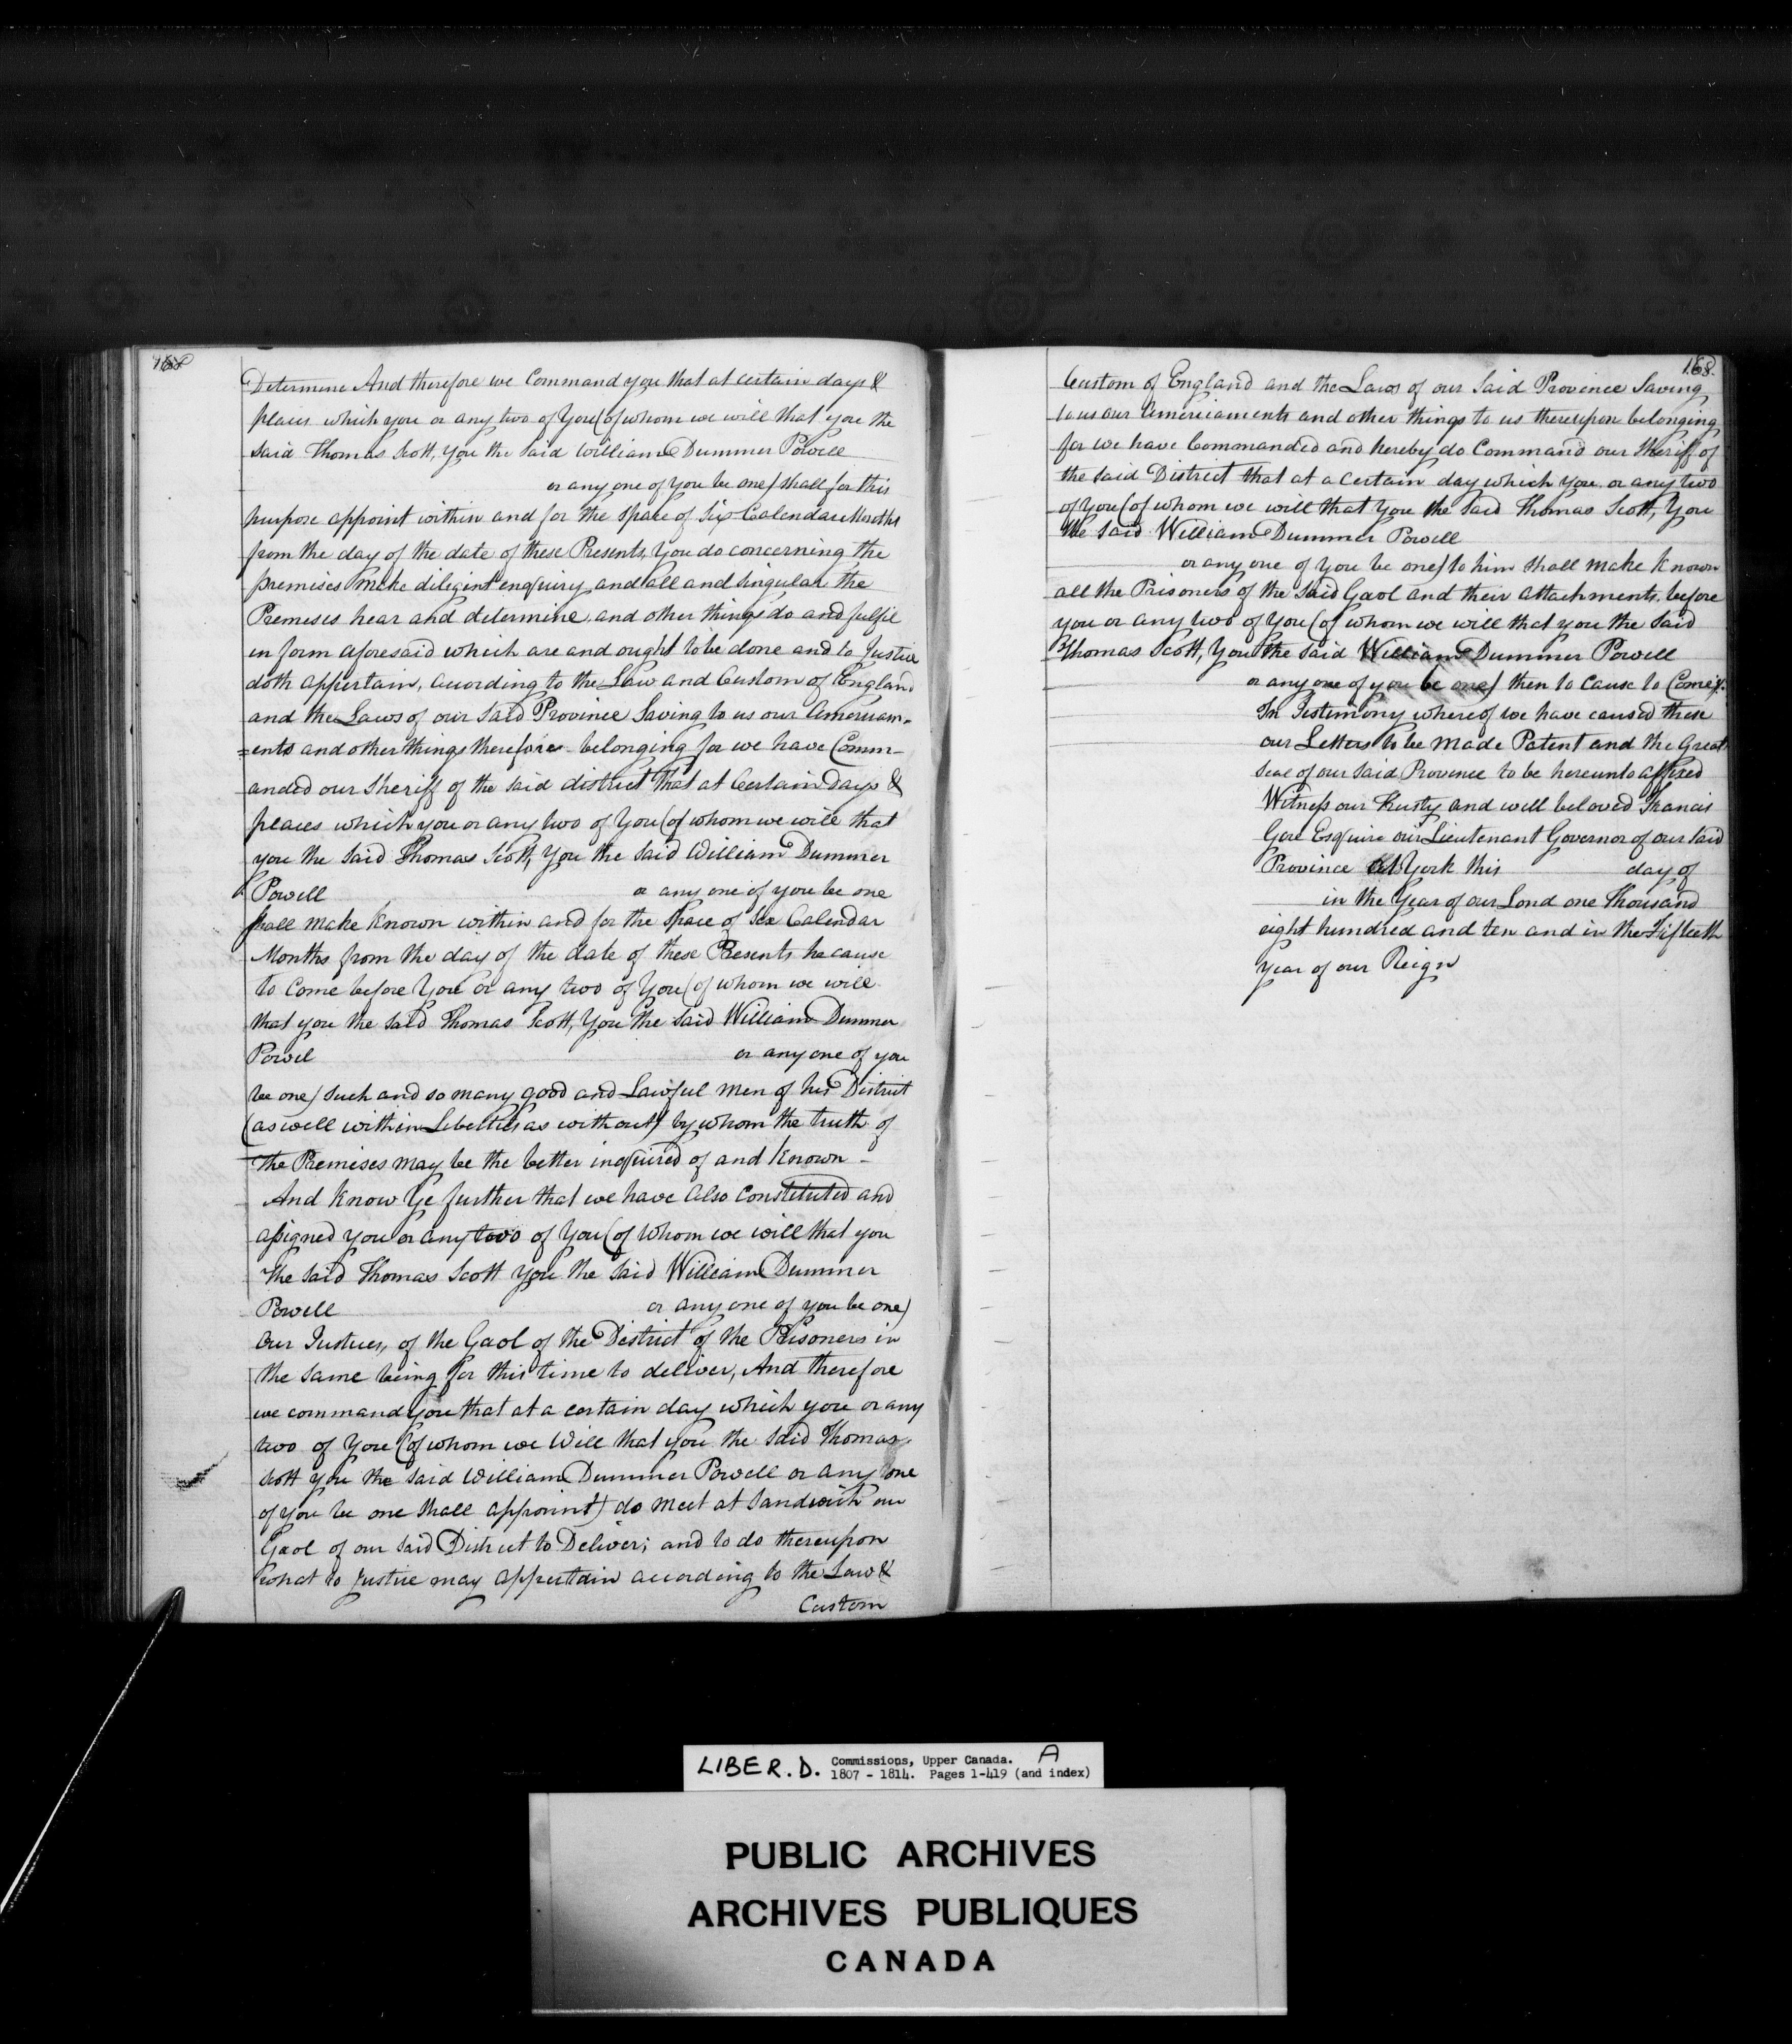 Determine And therefore we Command you that at certain days &
places which you or any two of You (of whom we will that you the
said Thomas Scott, you the said William Dummer Powell
or any one of you be one) shall for this
purpose appoint within and for the space of Six Calendar Months
from the day of the date of these Presents, You do concerning the
premises make diligent enquiry and all and singular the
Premises hear and determine and other things do and fulfil
in form aforesaid which are and ought to be done and to Justice
doth appertain, according to the Law and Custom of England
and the Laws of our said Province Saving to us our Amerciam-
=ents and other things therefore belonging for we have Comm-
anded our Sheriff of the said district that at Certain days &
places which you or any two of You (of whom we will that
you the said Thomas Scott, You the said William Dummer
Powell or any one of you be one
shall make known within and for the space of Six Calendar
Months from the day of the date of these Presents he cause
to Come before You or any two of You (of whom we will
that you the said Thomas Scott, You the said William Dummer
Powel or any one of you
be one) such and so many good and Lawful men of his District
(as well within Liberties as without) by whom the truth of
the Premises may be the better inquired of and known -
And know Ye further that we have also constituted and
assigned you or any two of You (of whom we will that you
the said Thomas Scott you the said William Dummer
Powell or any one of you be one)
our Justices, of the Gaol of the District of the Prisoners in
the same being for this time to deliver, And therefore
we command you that at a certain day which you or any
two of You (of whom we Will that you the said Thomas
Scott you the said William Dummer Powell or any one
of you be one shall appoint) do meet at Sandwich our
Gaol of our said District to Deliver; and to do thereupon
what to Justice may appertain according to the Law &
Custom
168
Custom of England and the Laws of our said Province Saving
to us our Amerciaments and other things to us thereupon belonging
for we have Commanded and hereby do Command our Sheriff of
the said District that at a certain day which you or any two
of You (of whom we will that You the said Thomas Scott, You
the said William Dummer Powell
or any one of you be one) to him shall make known
all the Prisoners of the said Gaol and their attachments before
you or any two of You (of whom we will that you the said
Thomas Scott, You the said William Dummer Powell
or any one of you be one) then to cause to Come
In Testimony whereof we have caused these
our Letters to be made Patent and the Great
Seal of our said Province to be hereunto affixed
Witness our Trusty and well beloved Francis
Gore Esquire our Lieutenant Governor of our said
Province at York this day of
in the Year of our Lord one Thousand
eight hundred and ten and in the Fiftieth
year of our Reign
LIBER.D. Commissions, Upper Canada. A
1807 - 1814. Pages 1-419 (and index)
PUBLIC ARCHIVES
ARCHIVES PUBLIQUES
CANADA